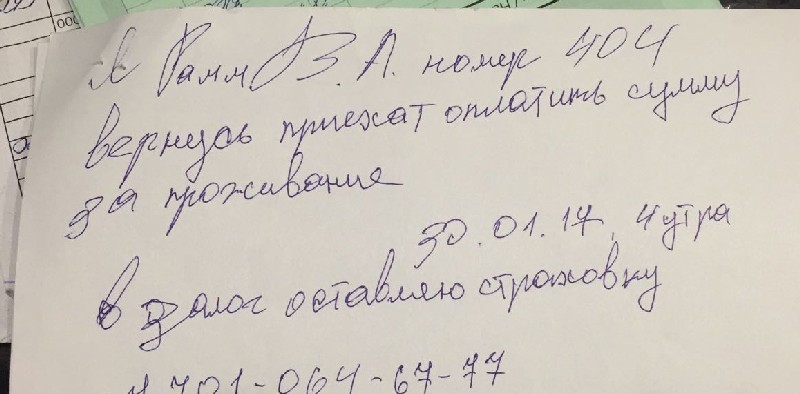 Я Рамм В.А. номер 404
вернусь приехат оплатить сумму
за проживание
30.01.17. 4 утра
в залог оставляю страховку
701-064-67-77